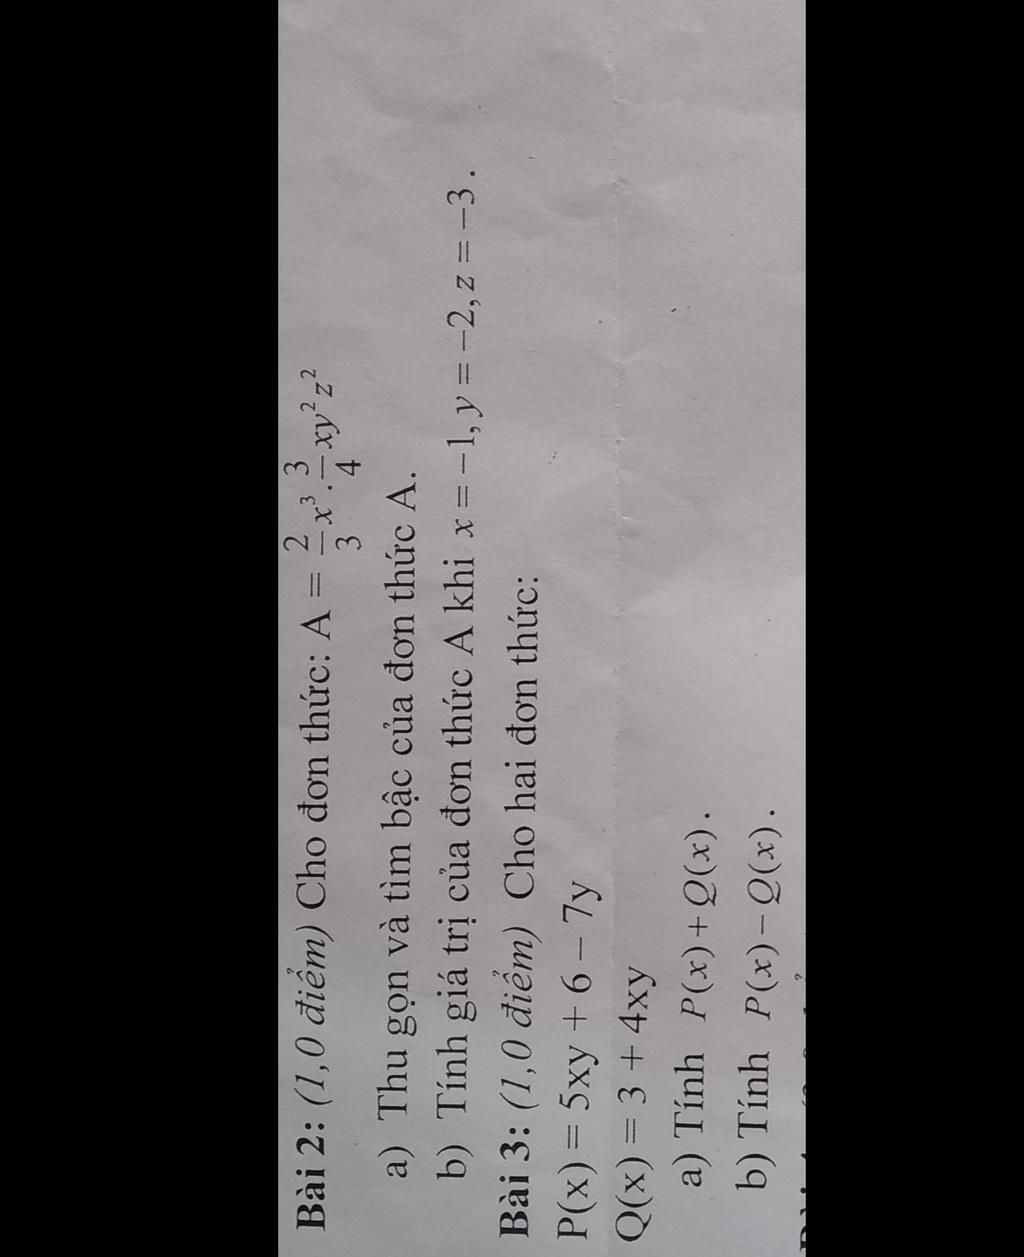 Bài 2: (1,0 điểm) Cho đơn thức: A = 2/3 x³ . 3/4 xy² z²
a) Thu gọn và tìm bậc của đơn thức A.
b) Tính giá trị của đơn thức A khi x = −1, y = −2, z = −3 .
Bài 3: (1,0 điểm) Cho hai đơn thức:
P(x) = 5xy + 6 − 7y
Q(x) = 3 + 4xy
a) Tính P(x) + Q(x) .
b) Tính P(x) − Q(x) .